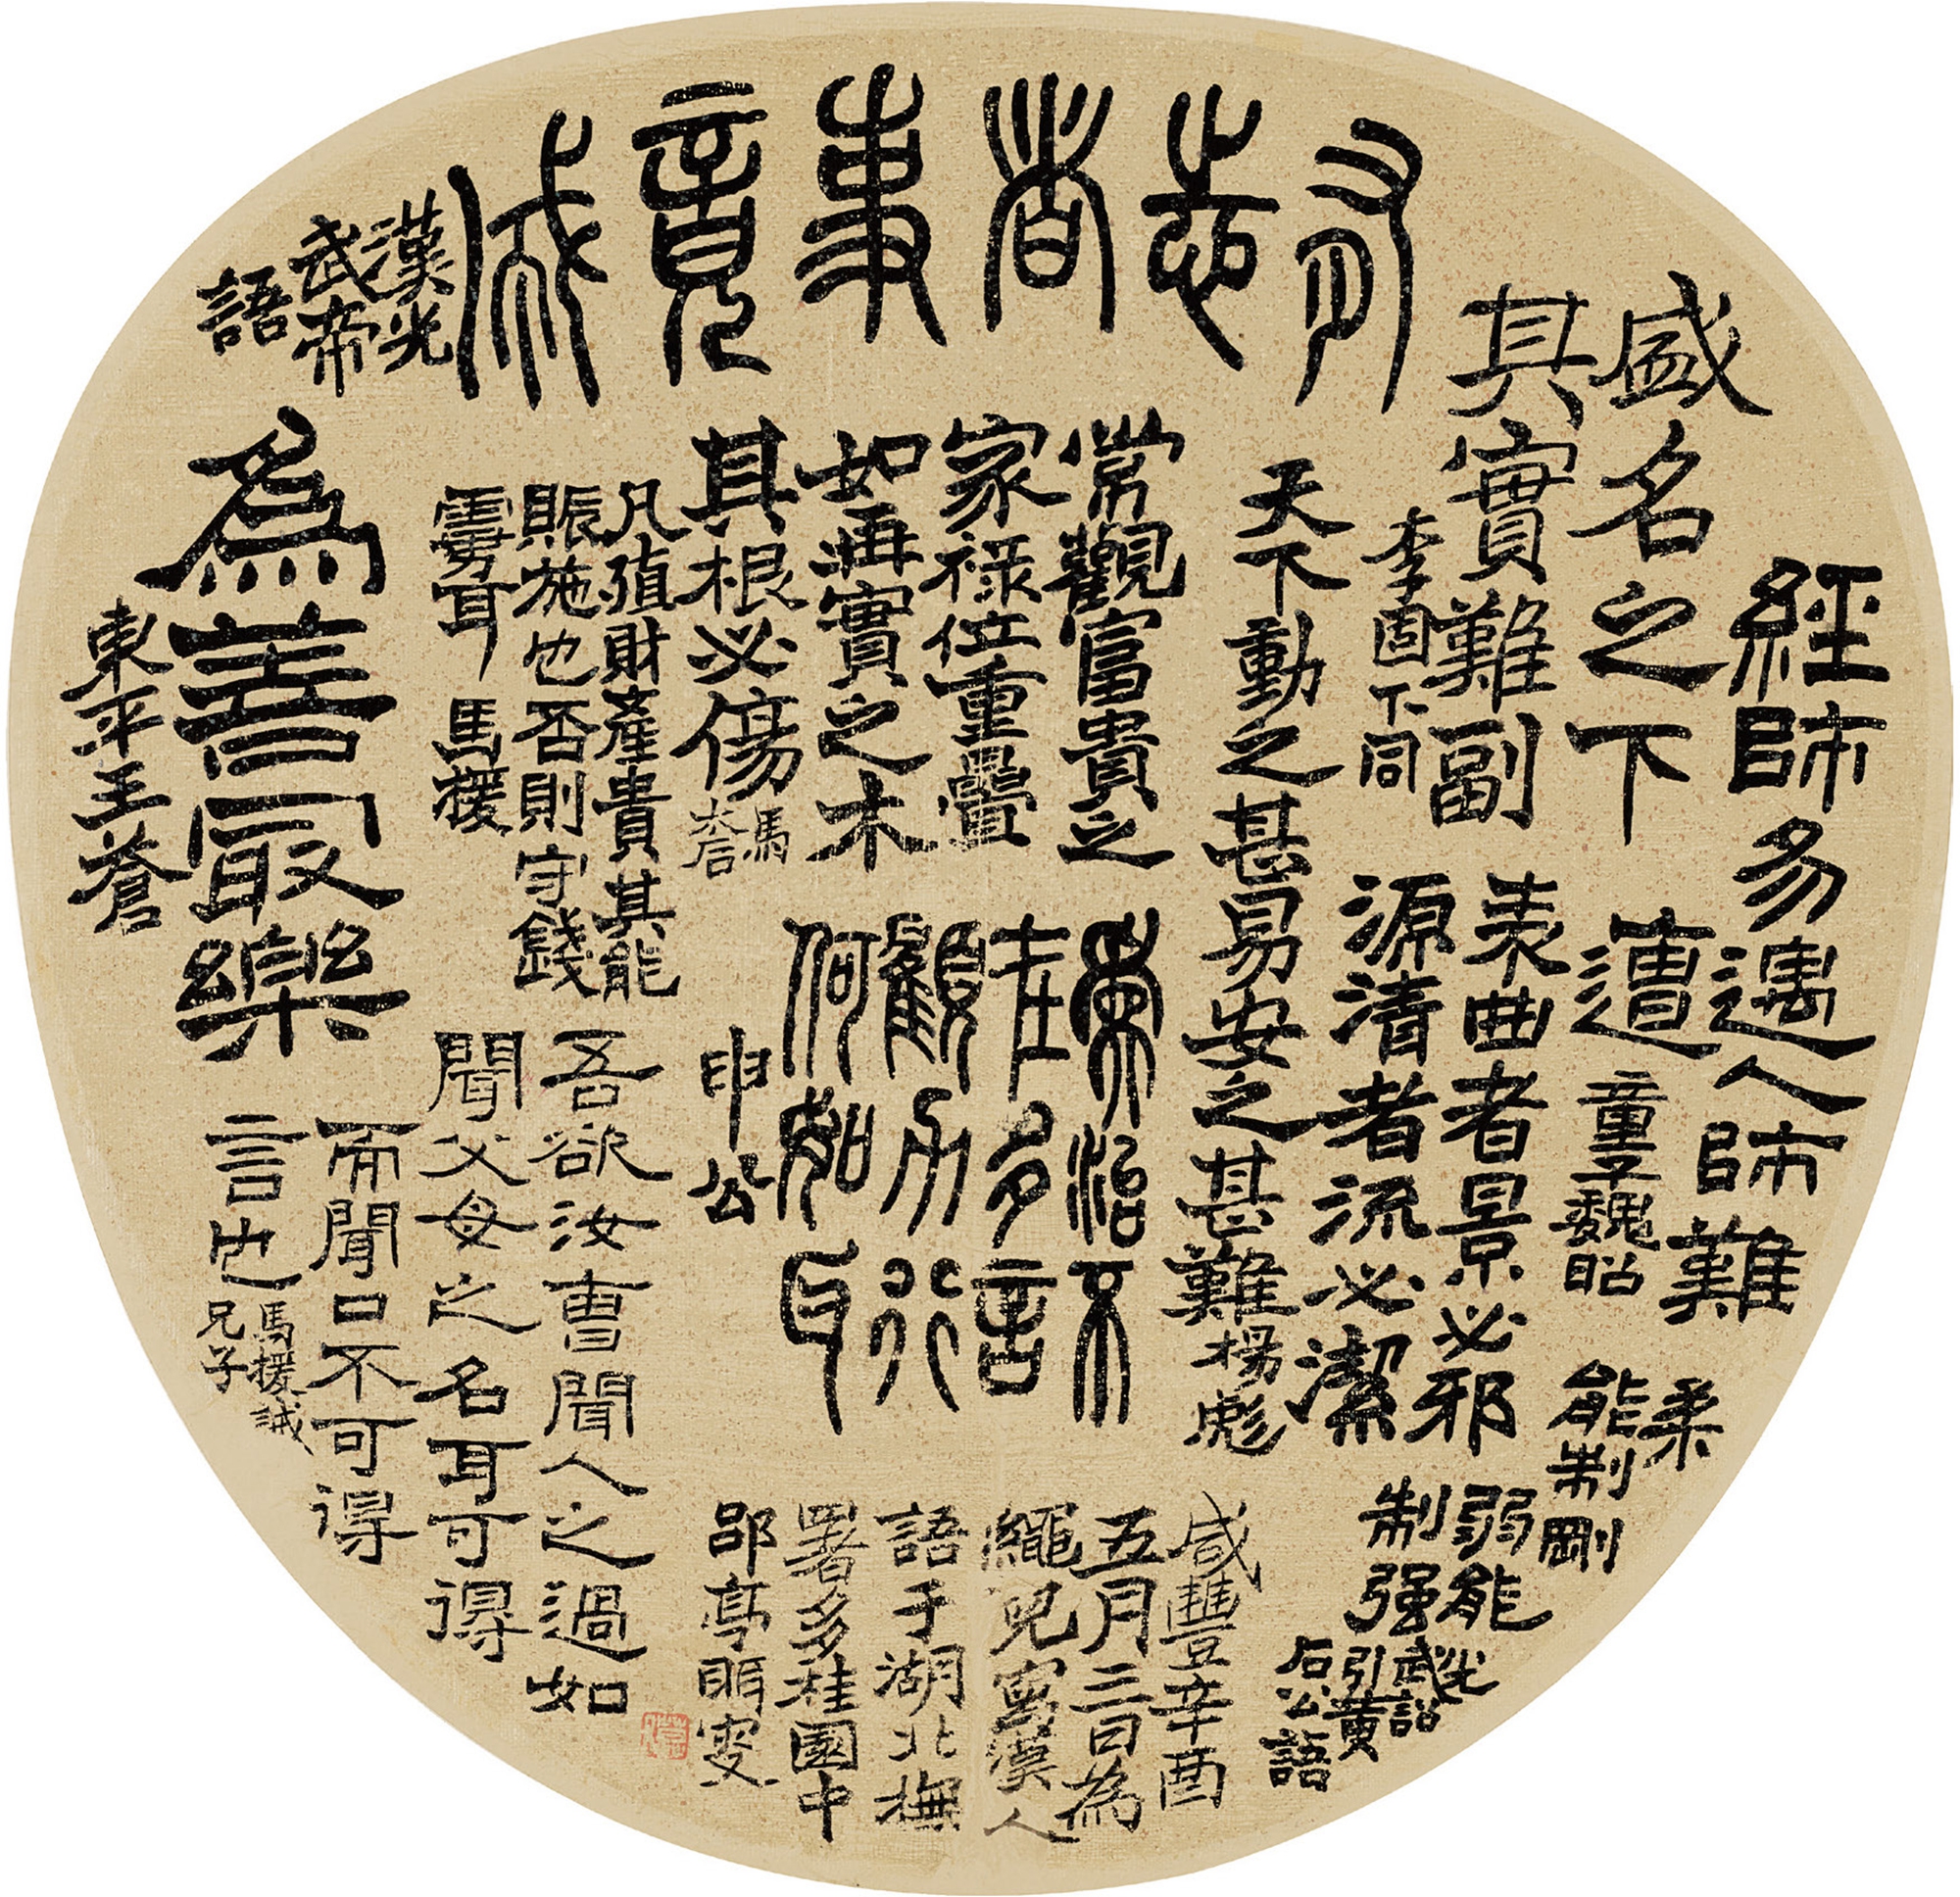 有志者事竟成
漢光
武帝
語
經師易遇人師難
遭
童子魏昭
盛名之下
其實難副
李固下同
表曲者景必邪
源清者流必潔
天下動之甚易安之甚難
楊彪
柔
能制剛
弱能
制强
光
武詔
引黃
石公語
常觀富貴之
家祿位重疊
如再實之木
其根必傷
馬
大后
為治不
在多言
顧力行
何如耳
申公
凡殖財產貴其能
賑施也否則守錢
虜耳 馬援
為善最樂
東平王蒼
吾欲汝曹聞人之過如
聞父母之名耳可得
而聞口不可得
言也
馬援誡
兄子
咸豐辛酉
五月三日為
繩兒寫漢人
語于湖北撫
署多桂園中
郘亭眲叟